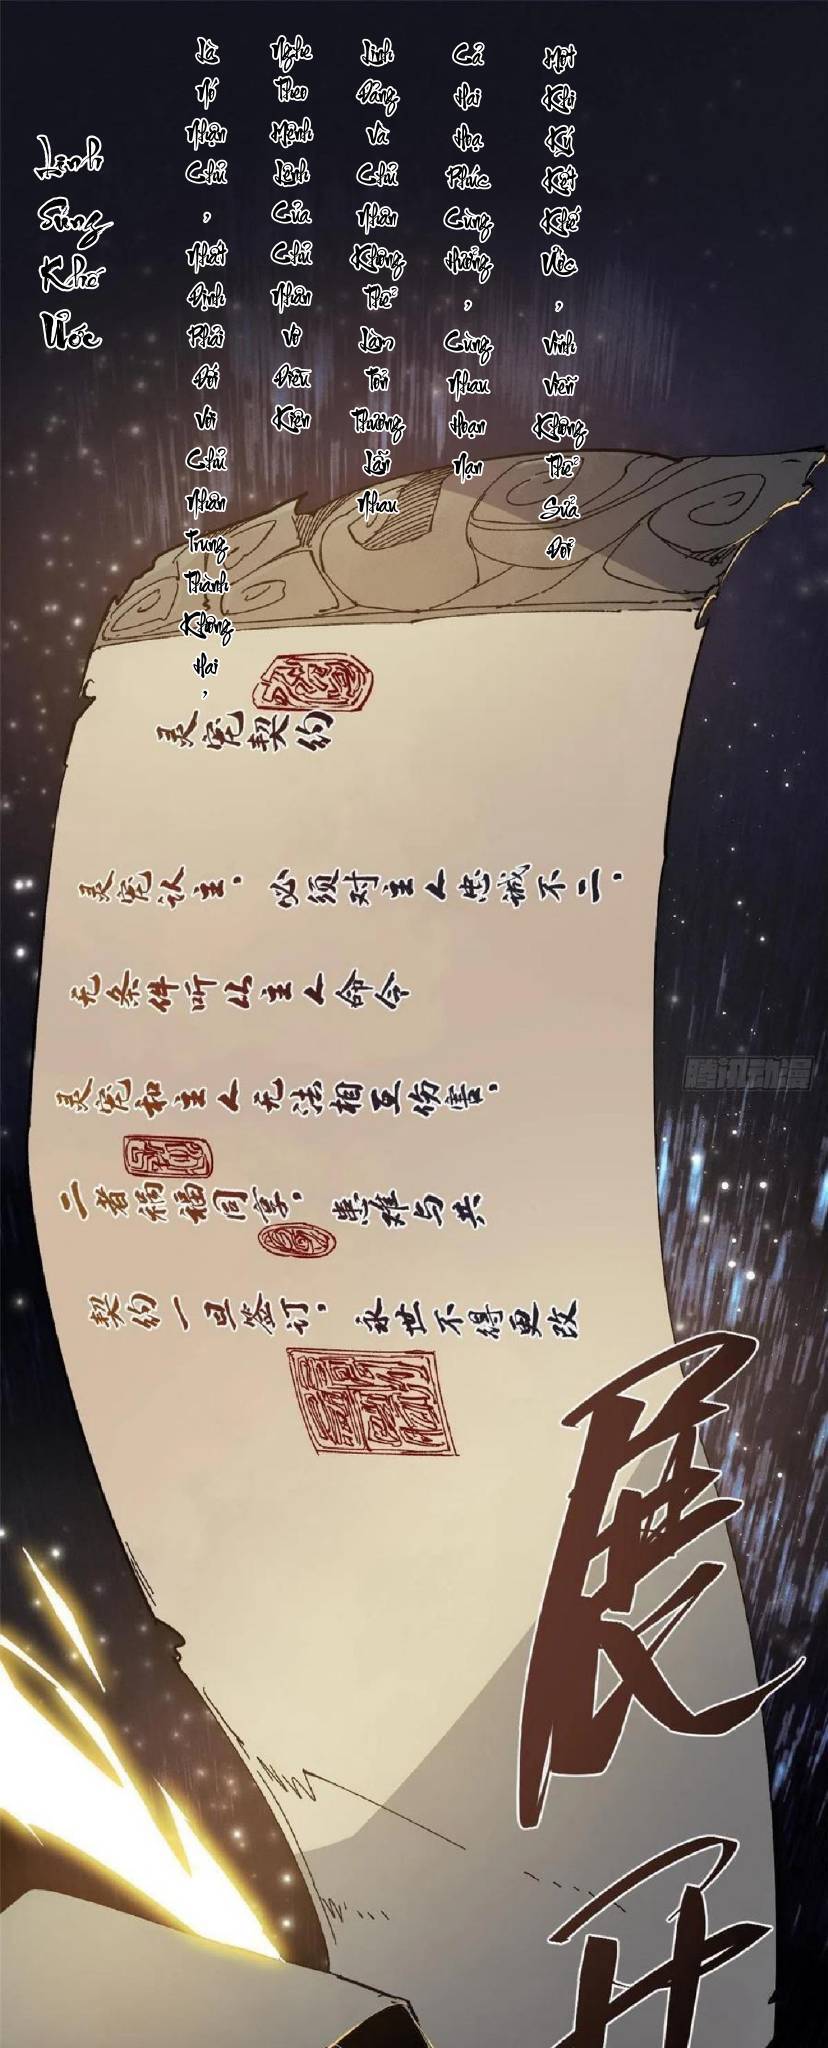 Linh Sủng Khế Ước
Là Nó Nhận Chủ, Nhất Định Phải Đối Với Chủ Nhân Trung Thành Không Hai,
Nghe Theo Mệnh Lệnh Của Chủ Nhân Vô Điều Kiện
Linh Đảng Và Chủ Nhân Không Thể Làm Tổn Thương Lẫn Nhau
Cả Hai Hoạ Phúc Cùng Hưởng, Cùng Nhau Hoạn Nạn
Một Khi Kí Kết Khế Ước, Vĩnh Viễn Không Thể Sửa Đổi
灵宠契约
灵宠认主，必须对主人忠诚不二，
无条件听从主人命令
灵宠和主人无法相互伤害，
二者祸福同享，患难与共
契约一旦签订，永世不得更改
腾讯动漫
展
开